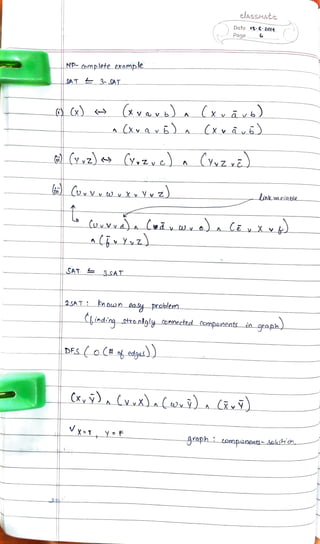 classmate
Date 18-6-2014
Page 6
NP-complete example
SAT ≤ 3-SAT
(i) (x) ⇔ (x ∨ a ∨ b) ∧ (x ∨ ā ∨ b)
∧ (x ∨ a ∨ b̄) ∧ (x ∨ ā ∨ b̄)
(ii) (y ∨ z) ⇔ (y ∨ z ∨ c) ∧ (y ∨ z ∨ c̄)
(iii) (u ∨ v ∨ w ∨ x ∨ y ∨ z)
link variable
(u ∨ v ∨ d) ∧ (d̄ ∨ w ∨ e) ∧ (ē ∨ x ∨ f)
∧ (f̄ ∨ y ∨ z)
SAT ≤ 3SAT
2SAT : known easy problem
(finding stronlgly connected components in graph)
DFS (O(# of edges))
(x ∨ ȳ) ∧ (v ∨ x) ∧ (w ∨ ȳ) ∧ (x̄ ∨ ȳ)
√ x=T, y=F
graph : components - solution.